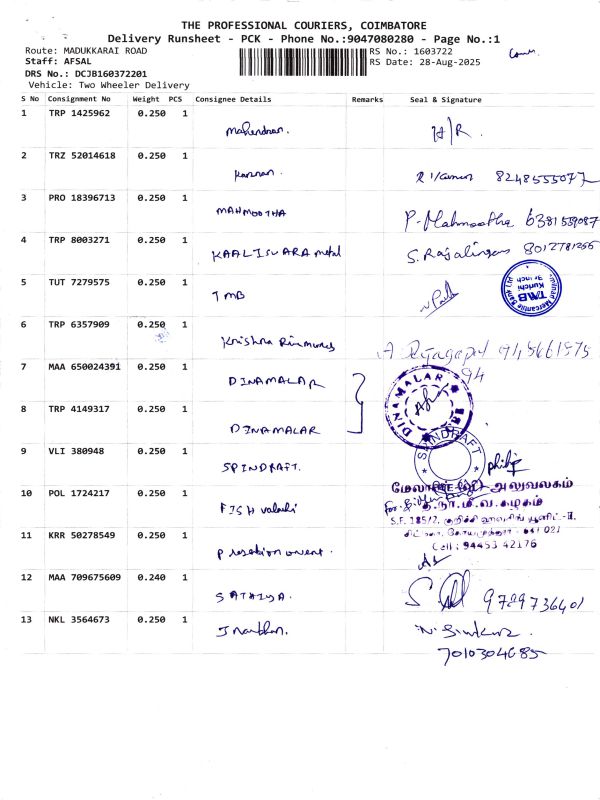 THE PROFESSIONAL COURIERS, COIMBATORE
Delivery Runsheet - PCK - Phone No.:9047080280 - Page No.:1
Route: MADUKKARAI ROAD RS No.: 1603722
Staff: AFSAL RS Date: 28-Aug-2025
DRS No.: DCJB160372201
Vehicle: Two Wheeler Delivery
S No Consignment No Weight PCS Consignee Details Remarks Seal & Signature
1 TRP 1425962 0.250 1
Mahendran. H/R.
2 TRZ 52014618 0.250 1
Kannan. 8248555077
3 PRO 18396713 0.250 1
MAHMOOTHA P. Mahmootha 6381559087
4 TRP 8003271 0.250 1
KAALISWARA metal S. Rajalingam 8012781266
5 TUT 7279575 0.250 1
TMB
TMB
Kurichi
6 TRP 6357909 0.250 1
Krishna A Rajagopal
94
7 MAA 650024391 0.250 1
DINAMALAR DINAMALAR
8 TRP 4149317 0.250 1
DINAMALAR
9 VLI 380948 0.250 1 SPINDRAFT
SPINDRAFT. philip
10 POL 1724217 0.250 1 அலுவலகம்
FISH த.நா.மி.வ.கழகம்
S.F. 185/2, குறிச்சி ஹவுசிங் யூனிட்-II,
11 KRR 50278549 0.250 1 641 021
Cell : 94453 42176
12 MAA 709675609 0.240 1
SATHIYA. 9789736401
13 NKL 3564673 0.250 1
7010304685